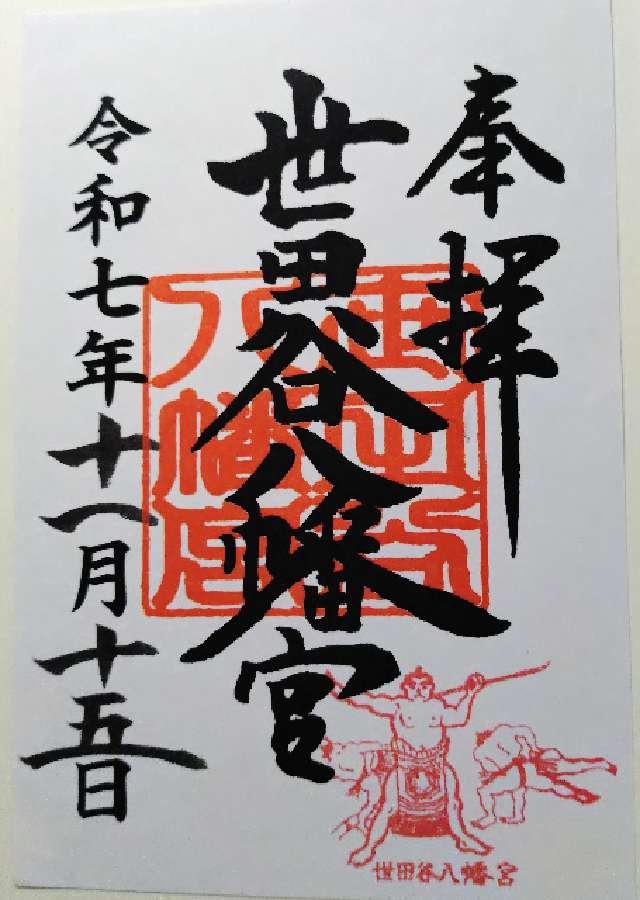 奉拝
世田谷八幡宮
令和七年十一月十五日
世田谷八幡宮
世田谷八幡宮